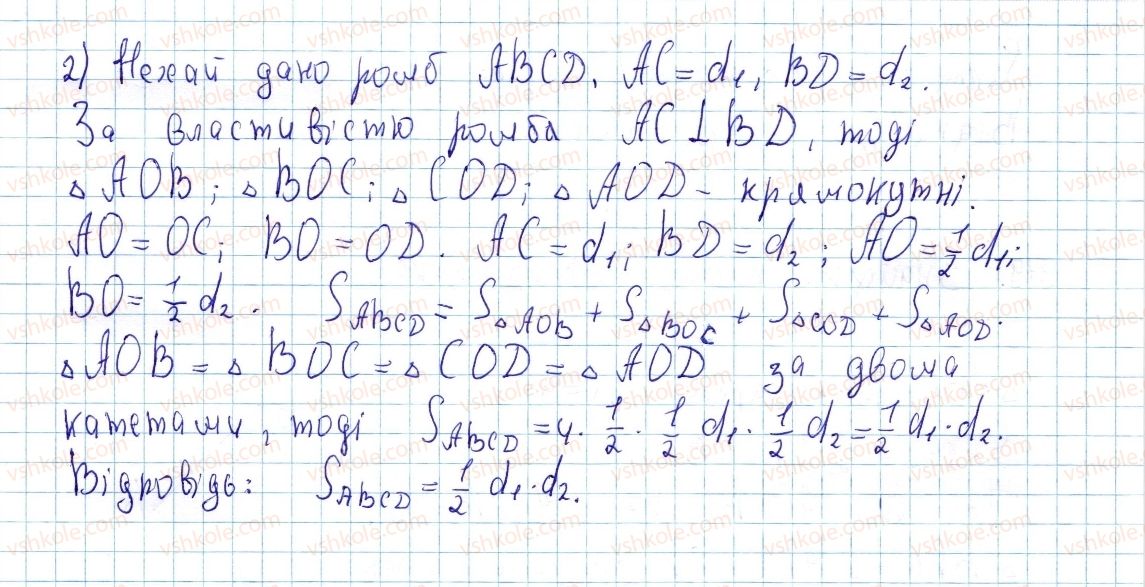 2) Нехай дано ромб ABCD, AC = d₁, BD = d₂.
За властивістю ромба AC ⊥ BD, тоді
△AOB; △BOC; △COD; △AOD – прямокутні.
AO = OC; BO = OD. AC = d₁; BD = d₂; AO = 1/2 d₁;
BO = 1/2 d₂. S_ABCD = S_△AOB + S_△BOC + S_△COD + S_△AOD.
△AOB = △BOC = △COD = △AOD за двома
катетами, тоді S_ABCD = 4 · 1/2 · 1/2 d₁ · 1/2 d₂ = 1/2 d₁ · d₂.
Відповідь: S_ABCD = 1/2 d₁ · d₂.
vshkole.com